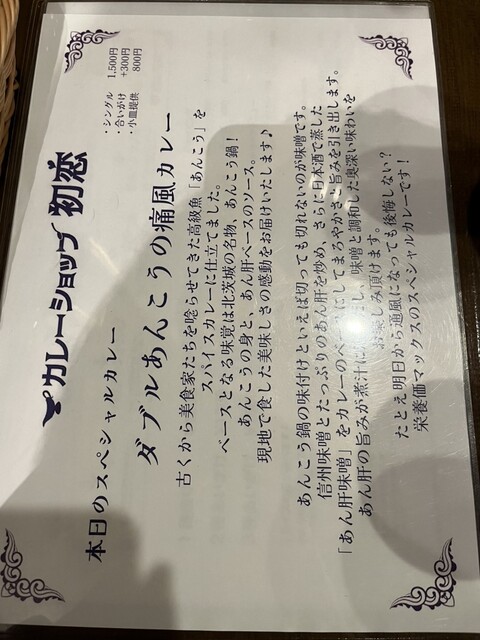 カレーショップ 初恋
・シングル 1,500円
・合いがけ +300円
・小皿提供 800円
本日のスペシャルカレー
ダブルあんこうの痛風カレー
古くから美食家たちを唸らせてきた高級魚「あんこう」を
スパイスカレーに仕立てました。
ベースとなる味覚は北茨城の名物、あんこう鍋！
あんこうの身と、あん肝ベースのソース。
現地で食した美味しさの感動をお届けいたします♪
あんこう鍋の味付けといえば切っても切れないのが味噌です。
信州味噌とたっぷりのあん肝を炒め、さらに日本酒で蒸した
「あん肝味噌」をカレーのベースにしてまろやかさと旨みを引き出します。
あん肝の旨みが煮汁に し、味噌と調和した奥深い味わいを
お楽しみ頂けます。
たとえ明日から通風になっても後悔しない？
栄養価マックスのスペシャルカレーです！